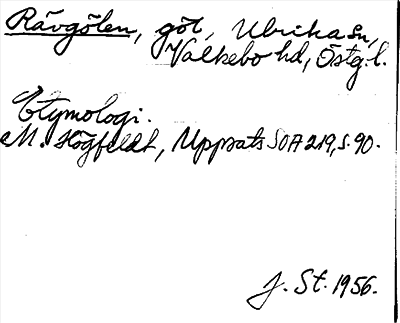 Rävgölen, göl, Ulrika sn,
Valkebo hd, Östg. l.
Etymologi.
M. Högfeldt, Uppsats SOA 219, s. 90.
J. St. 1956.